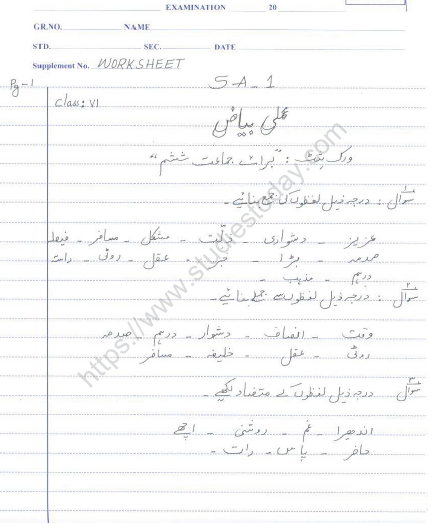 EXAMINATION 20
GR.NO. NAME
STD. SEC. DATE
Supplement No. WORKSHEET
Pg-1 SA-1
Class: VI
عملی بیاض
ورک شیٹ : "برائے جماعت ششم"
سوال ۱ : درجہ ذیل لفظوں کا جمع بنائیے۔
عزیز - دشواری - ذلّت - مشکل - مسافر - فیصلہ
صدمہ - بڑا - جز - عقل - روٹی - رات
درہم - مذہب -
سوال ۲ : درجہ ذیل لفظوں سے جملے بنائیے۔
وقت - انصاف - دشوار - درہم - صدمہ
روٹی - عقل - خلیفہ - مسافر
سوال ۳ درجہ ذیل لفظوں کے متضاد لکھیے۔
اندھیرا - غم - روشنی - اچھے
حاضر - پاس - رات -
https://www.studiestoday.com